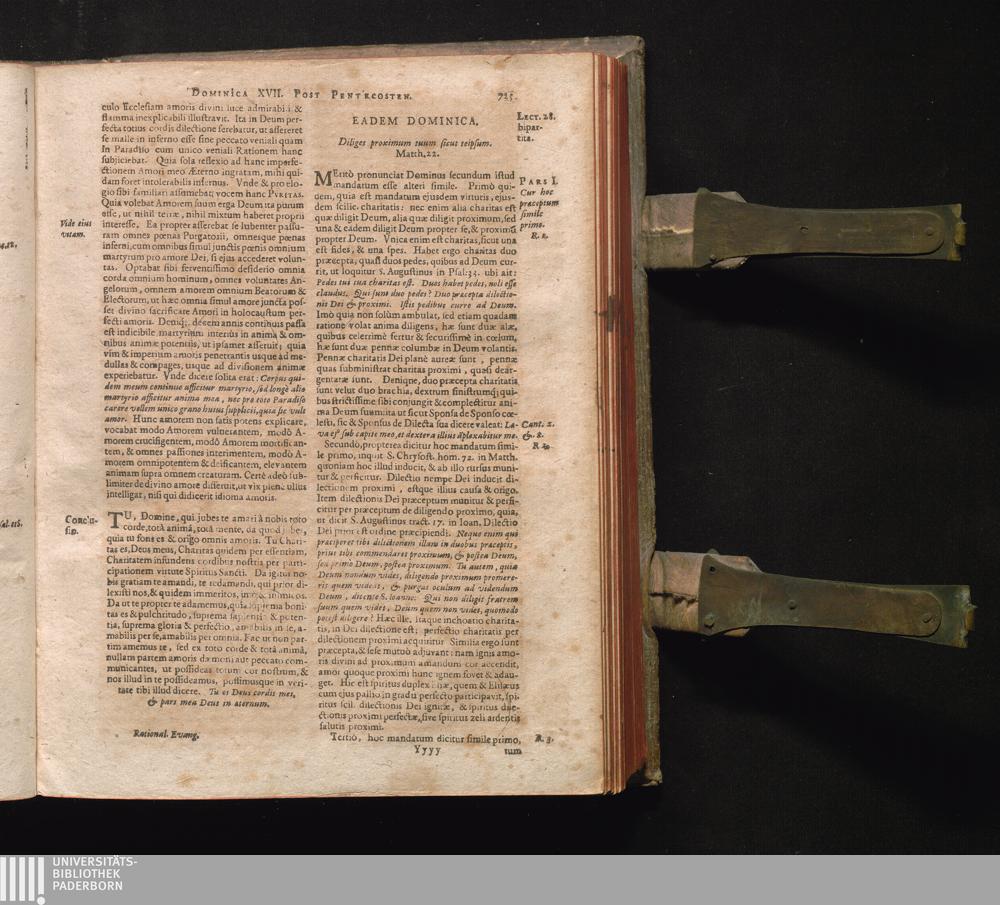 DOMINICA XVII. POST PENTECOSTEN.
725.
culo Ecclesiam amoris divini luce admirabili &
flamma inexplicabili illustravit. Ita in Deum per-
fecta totius cordis dilectione ferebatur, ut assereret
se malle in inferno esse sine peccato veniali quam
In Paradiso cum unico veniali Rationem hanc
subjiciebat. Quia sola reflexio ad hanc imperfe-
ctionem Amori meo Æterno ingratam, mihi qui-
dam foret intolerabilis infernus. Vnde & pro elo-
gio sibi familiari assumebat vocem hanc PVRITAS.
Quia volebat Amorem suum erga Deum ita purum
esse, ut nihil terræ, nihil mixtum haberet proprii
interesse. Ea propter asserebat se lubenter passu-
ram omnes pœnas Purgatorii, omnesque pœnas
inferni, cum omnibus simul junctis pœnis omnium
martyrum pro amore Dei, si ejus accederet volun-
tas. Optabat sibi ferventissimo desiderio omnia
corda omnium hominum, omnes voluntates An-
gelorum, omnem amorem omnium Beatorum &
Electorum, ut hæc omnia simul amore juncta pos-
set divino sacrificare Amori in holocaustum per-
fecti amoris. Deniq; decem annis continuis passa
est indicibile martyrium interiùs in animâ & om-
nibus animæ potentiis, ut ipsamet asseruit; quia
vim & imperium amoris penetrantis usque ad me-
dullas & compages, usque ad divisionem animæ
experiebatur. Vnde dicere solita erat: Corpus qui-
dem meum continuo afficitur martyrio, sed longè alio
martyrio afficitur anima mea, nec pro toto Paradiso
carere vellem unico grano hujus supplicii, quia sic vult
amor. Hunc amorem non satis potens explicare,
vocabat modo Amorem vulnerantem, modò A-
morem crucifigentem, modò Amorem mortifican-
tem, & omnes passiones interimentem, modò A-
morem omnipotentem & deificantem, elevantem
animam supra omnem creaturam. Certè adeò sub-
limiter de divino amore disseruit, ut vix plene ullus
intelligat, nisi qui didicerit idioma amoris.
TU, Domine, qui jubes te amari à nobis toto
corde, totâ animâ, totâ mente, da quod jubes,
quia tu fons es & origo omnis amoris. Tu Chari-
tas es, Deus meus, Charitas quidem per essentiam,
Charitatem infundens cordibus nostris per parti-
cipationem virtute Spiritus Sancti. Da igitur no-
bis gratiam te amandi, te redamandi, qui prior di-
lexisti nos, & quidem immeritos, imò & inimicos.
Da ut te propter te adamemus, quia suprema boni-
tas es & pulchritudo, suprema sapientia & poten-
tia, suprema gloria & perfectio, amabilis in te, a-
mabilis per se, amabilis per omnia. Fac ut non par-
tim amemus te, sed ex toto corde & totâ animâ,
nullam partem amoris dæmoni aut peccato com-
municantes, ut possideas totum cor nostrum, &
nos illud in te possideamus, possimusque in veri-
tate tibi illud dicere. Tu es Deus cordis mei,
& pars mea Deus in æternum.
Rational. Evang.
Vide ejus
vitam.
Conclu-
sio.
EADEM DOMINICA.
Diliges proximum tuum sicut teipsum.
Matth. 22.
MEritò pronunciat Dominus secundum istud
mandatum esse alteri simile. Primò qui-
dem, quia est mandatum ejusdem virtutis, ejus-
dem scilic. charitatis: nec enim alia charitas est
quæ diligit Deum, alia quæ diligit proximum, sed
una & eadem diligit Deum propter se, & proximũ
propter Deum. Vnica enim est charitas, sicut una
est fides, & una spes. Habet ergo charitas duo
præcepta, quasi duos pedes, quibus ad Deum cur-
rit, ut loquitur S. Augustinus in Psal. 33. ubi ait:
Pedes tui sua charitas est. Duos habes pedes, noli esse
claudus. Qui sunt duo pedes? Duo præcepta dilectio-
nis Dei & proximi. Istis pedibus curre ad Deum.
Imò quia non solùm ambulat, sed etiam quadam
ratione volat anima diligens, hæ sunt duæ alæ,
quibus celerrimè fertur & securissimè in cœlum,
hæ sunt duæ pennæ columbæ in Deum volantis.
Pennæ charitatis Dei planè aureæ sunt, pennæ
quas subministrat charitas proximi, quasi dear-
gentatæ sunt. Denique, duo præcepta charitatis
sunt velut duo brachia, dextrum sinistrumq; qui-
bus strictissimè sibi conjungit & complectitur ani-
ma Deum summita ut sicut Sponsa de Sponso cœ-
lesti, sic & Sponsus de Dilecta sua dicere valeat: Læ-
va ejꝰ sub capite meo, et dextera illius āplexabitur me.
Secundò, propterea dicitur hoc mandatum simi-
le primo, inquit S. Chrysost. hom. 72. in Matth.
quoniam hoc illud inducit, & ab illo rursus muni-
tur & perficitur. Dilectio nempe Dei inducit di-
lectionem proximi, estque illius causa & origo.
Item dilectionis Dei præceptum munitur & perfi-
citur per præceptum de diligendo proximo, quia,
ut dicit S. Augustinus tract. 17. in Ioan. Dilectio
Dei prior est ordine præcipiendi. Neque enim qui
præciperet tibi dilectionem illam in duobus præceptis,
prius tibi commendaret proximum, & postea Deum,
sed primo Deum, postea proximum. Tu autem, quia
Deum nondum vides, diligendo proximum promere-
ris quem videas, & purgas oculum ad videndum
Deum, dicente S. Ioanne: Qui non diligit fratrem
suum quem videt, Deum quem non videt, quomodo
potest diligere? Hæc ille, Itaque inchoatio charita-
tis, in Dei dilectione est; perfectio charitatis per
dilectionem proximi acquiritur Similia ergo sunt
præcepta, & sese mutuò adjuvant: nam ignis amo-
ris divini ad proximum amandum cor accendit,
amor quoque proximi hunc ignem fovet & adau-
get. Hic est spiritus duplex Eliæ, quem & Elisæus
cum ejus pallio in gradu perfecto participavit, spi-
ritus scil. dilectionis Dei ignitæ, & spiritus dile-
ctionis proximi perfectæ, sive spiritus zeli ardentis
salutis proximi.
Tertiò, hoc mandatum dicitur simile primo,
Yyyy
tum
LECT. 28.
bipar-
tita.
PARS I.
Cur hoc
præceptum
simile
primo.
R. 1.
Cant. 2.
& 8.
R. 2.
R. 3.
UNIVERSITÄTS-
BIBLIOTHEK
PADERBORN